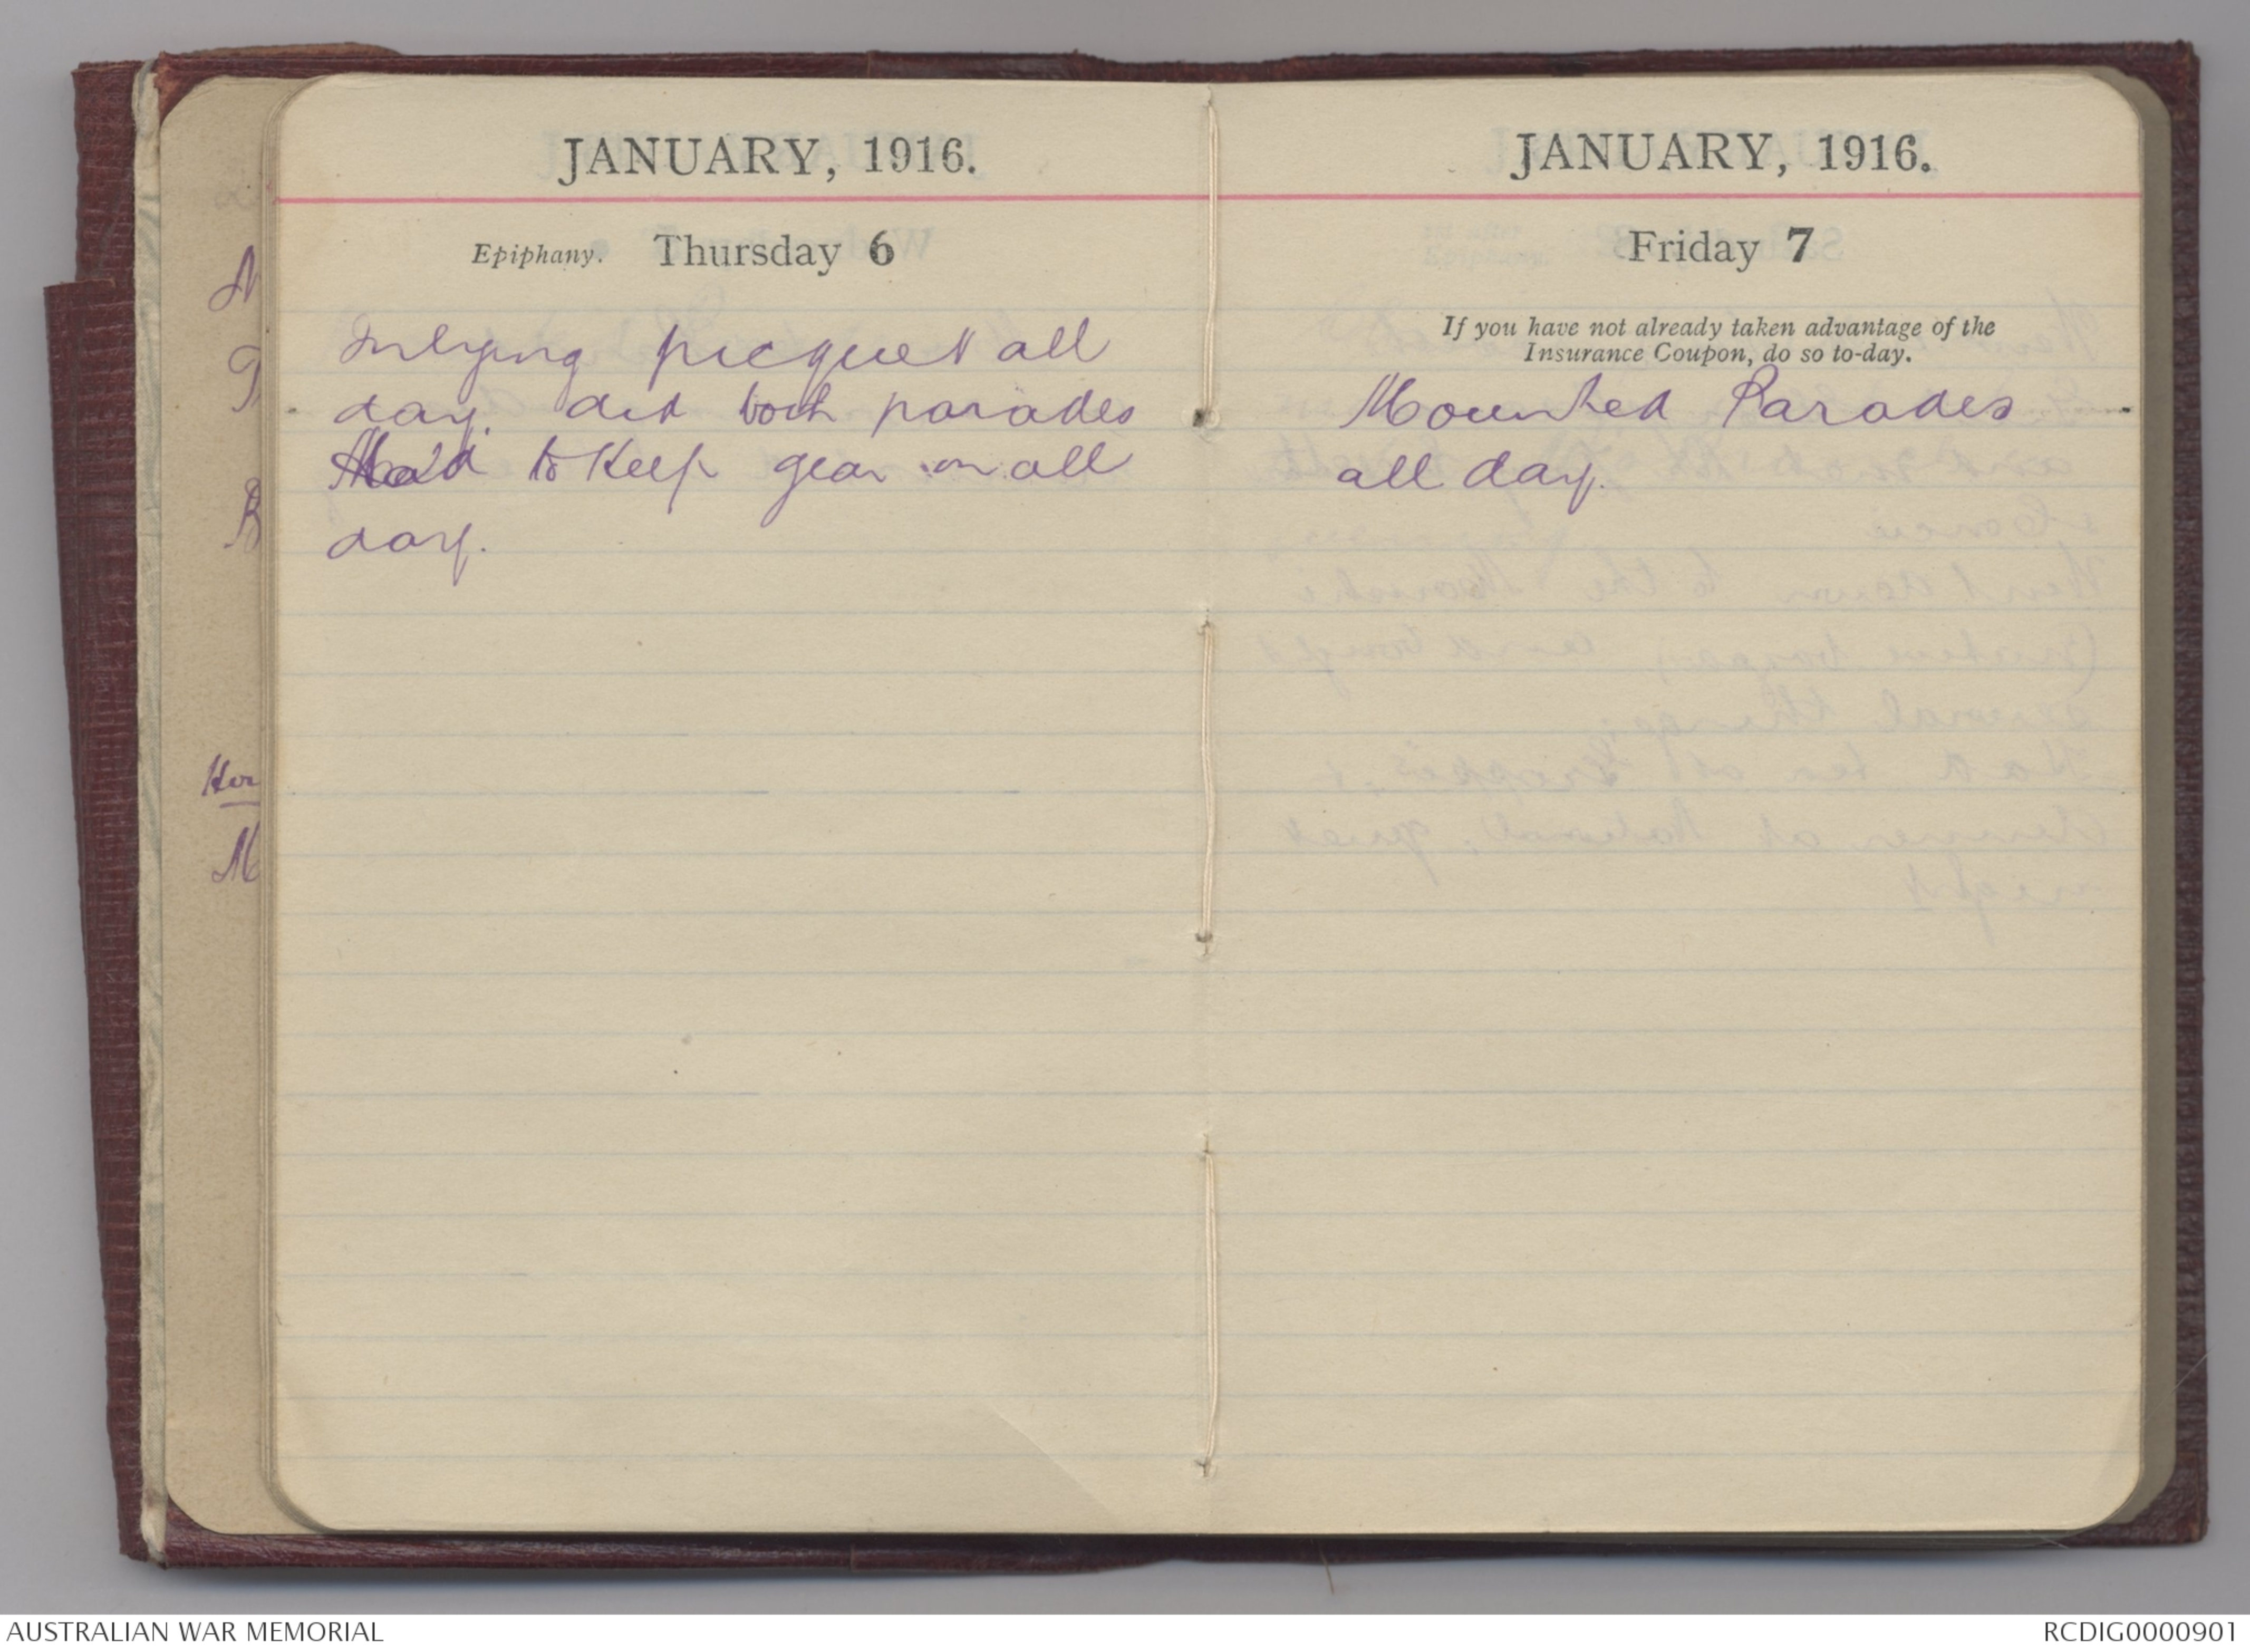 JANUARY, 1916.
Epiphany. Thursday 6
Inlying picquet all
day. did both parades
Had to keep gear on all
day.
JANUARY, 1916.
Friday 7
If you have not already taken advantage of the
Insurance Coupon, do so to-day.
Mounted Parades
all day.
AUSTRALIAN WAR MEMORIAL
RCDIG0000901